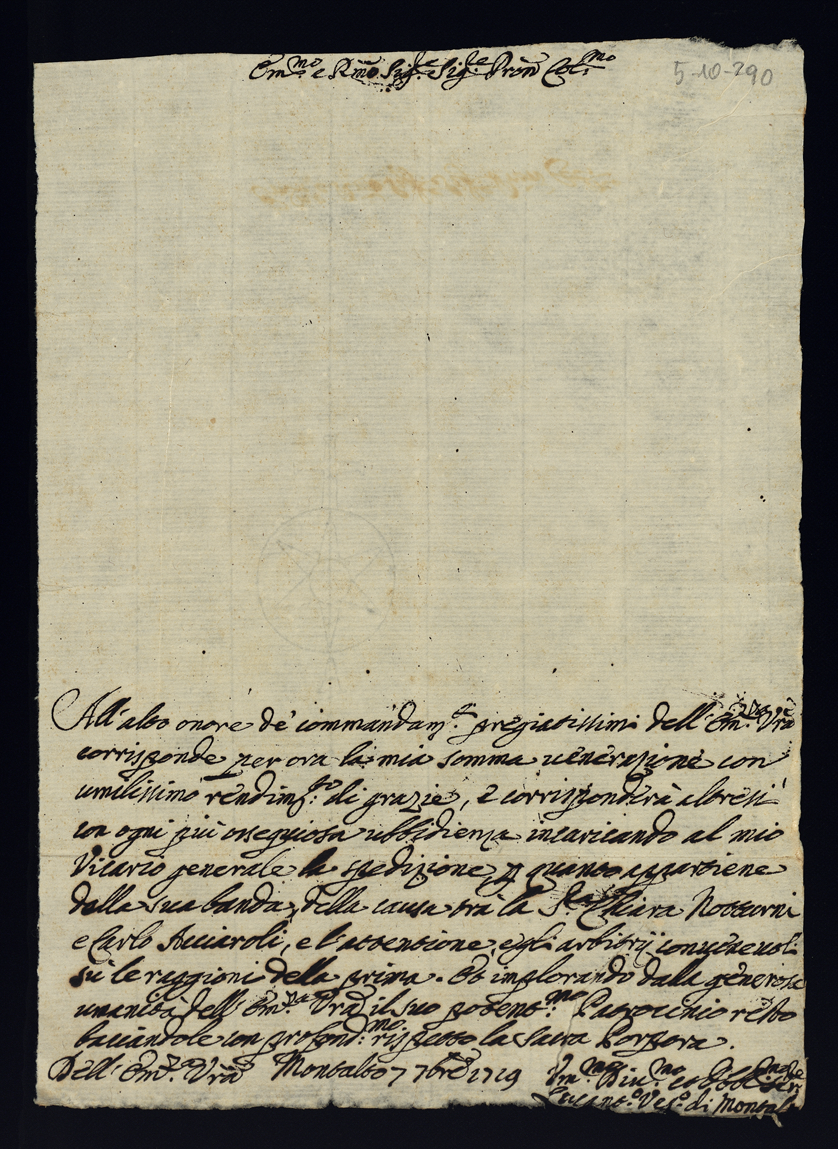 Em.mo e R.mo Sig.re Sig.re Pron Col.mo
5-10-290
All'alto onore de' commandam.ti pregiatissimi dell'Em.za Vrã
corrisponde per ora la mia somma venerazione con
umilissimo rendim.to di grazie, e corrisponderà altresì
con ogni più ossequiosa ubbidienza incaricando al mio
Vicario generale la spedizione p quanto appartiene
dalla sua banda, della causa trà la S.ra Chiara Notturni
e Carlo Acciaroli, e l'attentione, e gli arbitrij convenevoli
sù le raggioni della prima. Et implorando dalla generosa
umanità dell'Em.za Vrã il suo potent.mo Patrocinio resto
baciandole con profond.mo rispetto la sacra Porpora.
Dell'Em.za Vrã Montalto 7 7bre 1719 Vm.mo Div.mo et Obbl.mo
Ves.o di Montalto